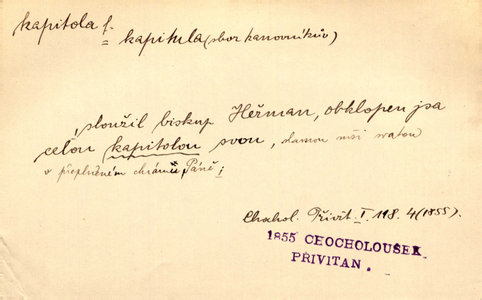 kapitola f.
= kapitula (sbor kanovníkův)
, sloužil biskup Heřman, obklopen jsa
celou kapitolou svou, slavnou mši svatou
v přeplněném chrámě Páně;
Chohol. Přivit. I. 198. 4 (1855).
1855 CHOCHOLOUŠEK
PŘIVITAN.